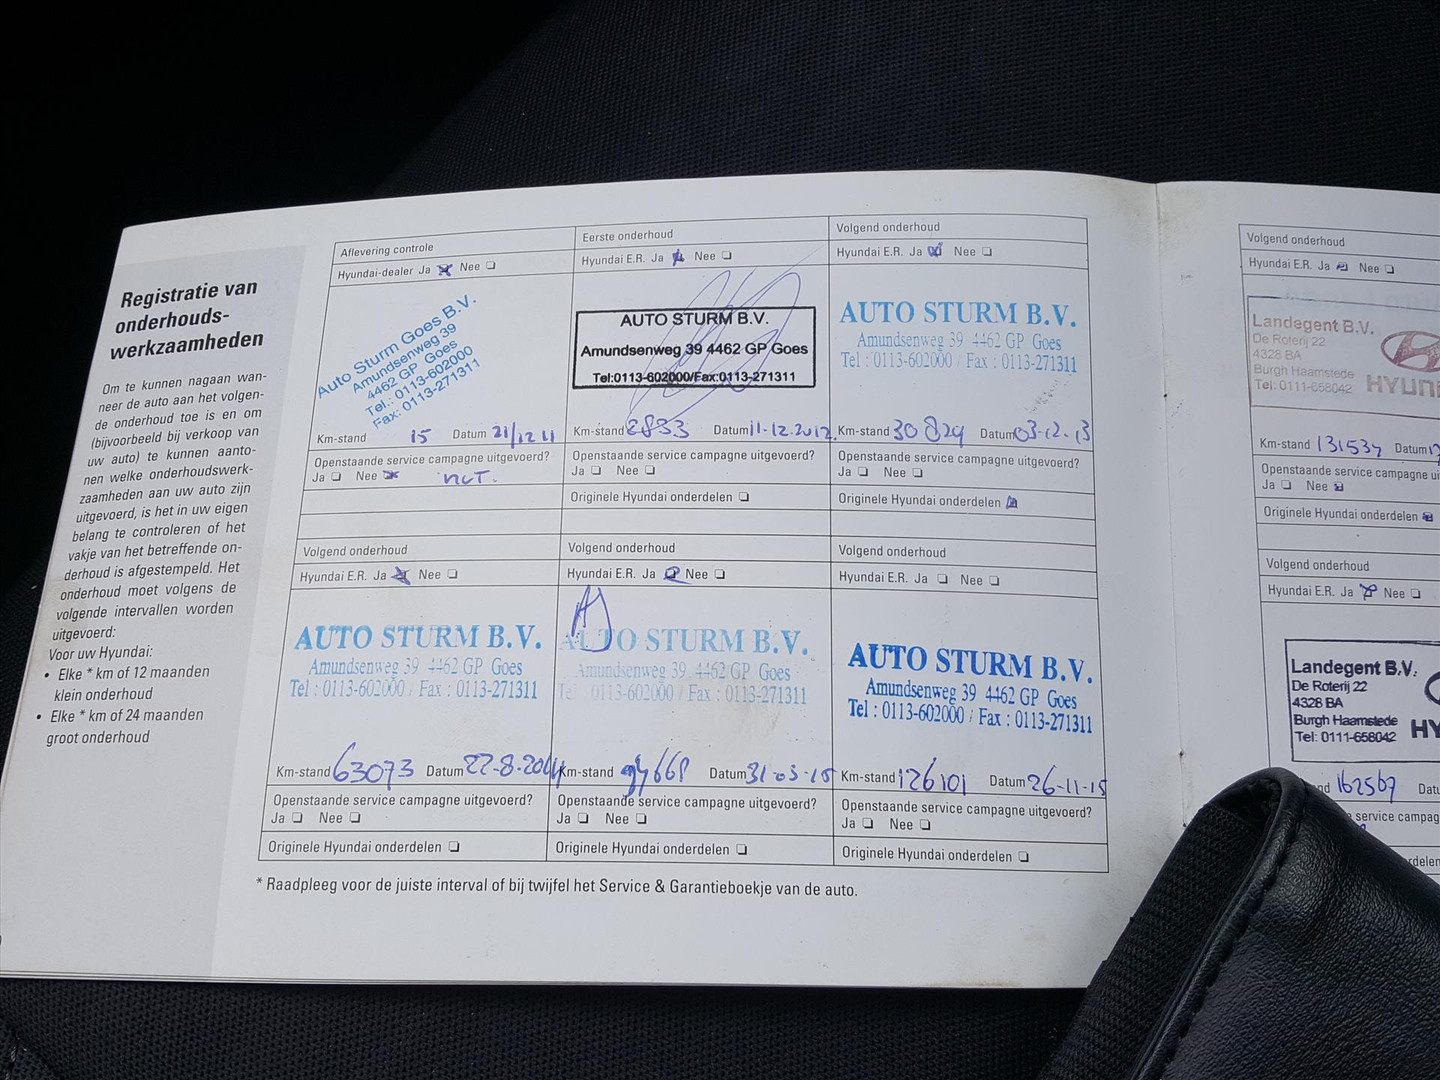 Registratie van
onderhouds-
werkzaamheden
Om te kunnen nagaan wan-
neer de auto aan het volgen-
de onderhoud toe is en om
(bijvoorbeeld bij verkoop van
uw auto) te kunnen aanto-
nen welke onderhoudswerk-
zaamheden aan uw auto zijn
uitgevoerd, is het in uw eigen
belang te controleren of het
vakje van het betreffende on-
derhoud is afgestempeld. Het
onderhoud moet volgens de
volgende intervallen worden
uitgevoerd:
Voor uw Hyundai:
• Elke * km of 12 maanden
klein onderhoud
• Elke * km of 24 maanden
groot onderhoud
Aflevering controle
Hyundai-dealer Ja Nee
Auto Sturm Goes B.V.
Amundsenweg 39
4462 GP Goes
Tel.: 0113-602000
Fax: 0113-271311
Km-stand 15 Datum 21/12 11
Openstaande service campagne uitgevoerd?
Ja Nee nvt.
Eerste onderhoud
Hyundai E.R. Ja Nee
AUTO STURM B.V.
Amundsenweg 39 4462 GP Goes
Tel:0113-602000/Fax:0113-271311
Km-stand Datum 11-12.2012
Openstaande service campagne uitgevoerd?
Ja Nee
Originele Hyundai onderdelen
Volgend onderhoud
Hyundai E.R. Ja Nee
AUTO STURM B.V.
Amundsenweg 39 4462 GP Goes
Tel : 0113-602000 / Fax : 0113-271311
Km-stand 30829 Datum 03-12.13
Openstaande service campagne uitgevoerd?
Ja Nee
Originele Hyundai onderdelen
Volgend onderhoud
Hyundai E.R. Ja Nee
AUTO STURM B.V.
Amundsenweg 39 4462 GP Goes
Tel : 0113-602000 / Fax : 0113-271311
Km-stand 63073 Datum 22-8-2014
Openstaande service campagne uitgevoerd?
Ja Nee
Originele Hyundai onderdelen
Volgend onderhoud
Hyundai E.R. Ja Nee
AUTO STURM B.V.
Amundsenweg 39 4462 GP Goes
Tel : 0113-602000 / Fax : 0113-271311
Km-stand Datum 31-03-15
Openstaande service campagne uitgevoerd?
Ja Nee
Originele Hyundai onderdelen
Volgend onderhoud
Hyundai E.R. Ja Nee
AUTO STURM B.V.
Amundsenweg 39 4462 GP Goes
Tel : 0113-602000 / Fax : 0113-271311
Km-stand 126101 Datum 26-11-15
Openstaande service campagne uitgevoerd?
Ja Nee
Originele Hyundai onderdelen
* Raadpleeg voor de juiste interval of bij twijfel het Service & Garantieboekje van de auto.
Volgend onderhoud
Hyundai E.R. Ja Nee
Landegent B.V.
De Roterij 22
4328 BA
Burgh Haamstede
Tel: 0111-658042 HYUN
Km-stand 131537 Datum
Openstaande service campagne ui
Ja Nee
Originele Hyundai onderdelen
Volgend onderhoud
Hyundai E.R. Ja Nee
Landegent B.V.
De Roterij 22
4328 BA
Burgh Haamstede HY
Tel: 0111-658042
nd 162567 Datu
service campag
rdelen